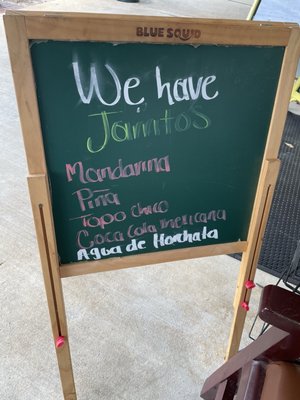 BLUE SQUID
We have
Jarritos
Mandarina
Piña
Topo chico
Coca cola mexicana
Agua de Horchata